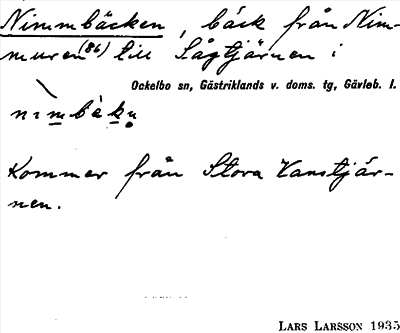 Nimmbäcken, bäck från Nim-
muren (86) till Lågtjärnen i
Ockelbo sn, Gästriklands v. doms. tg, Gävleb. l.
nımbèkn̥
Kommer från Stora Vanstjär-
nen.
LARS LARSSON 1935